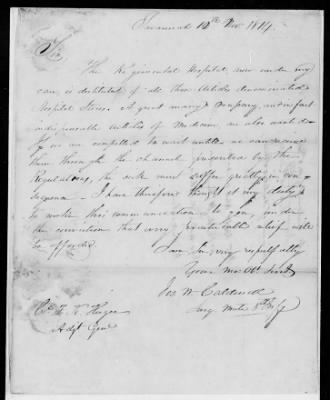 Savannah 12th Nov 1814.
Sir
The Regimental Hospital now under my
care is destitute of all those Articles denominated
Hospital Stores. A great many Company, and in fact
indispensable articles of Medicine, are also wanted
If we are compelled to wait until we can receive
them through the channel presented by the
Regulations, the sick must suffer greatly in con-
sequence. I have therefore thought it my duty
to make this communication to you, under
the conviction that every practicable relief will
be afforded.
I am Sir, very respectfully
Your Mo Obt Servt
Jas W. Caldwell
Surg. Mate 8th Infy
Adjt Genl